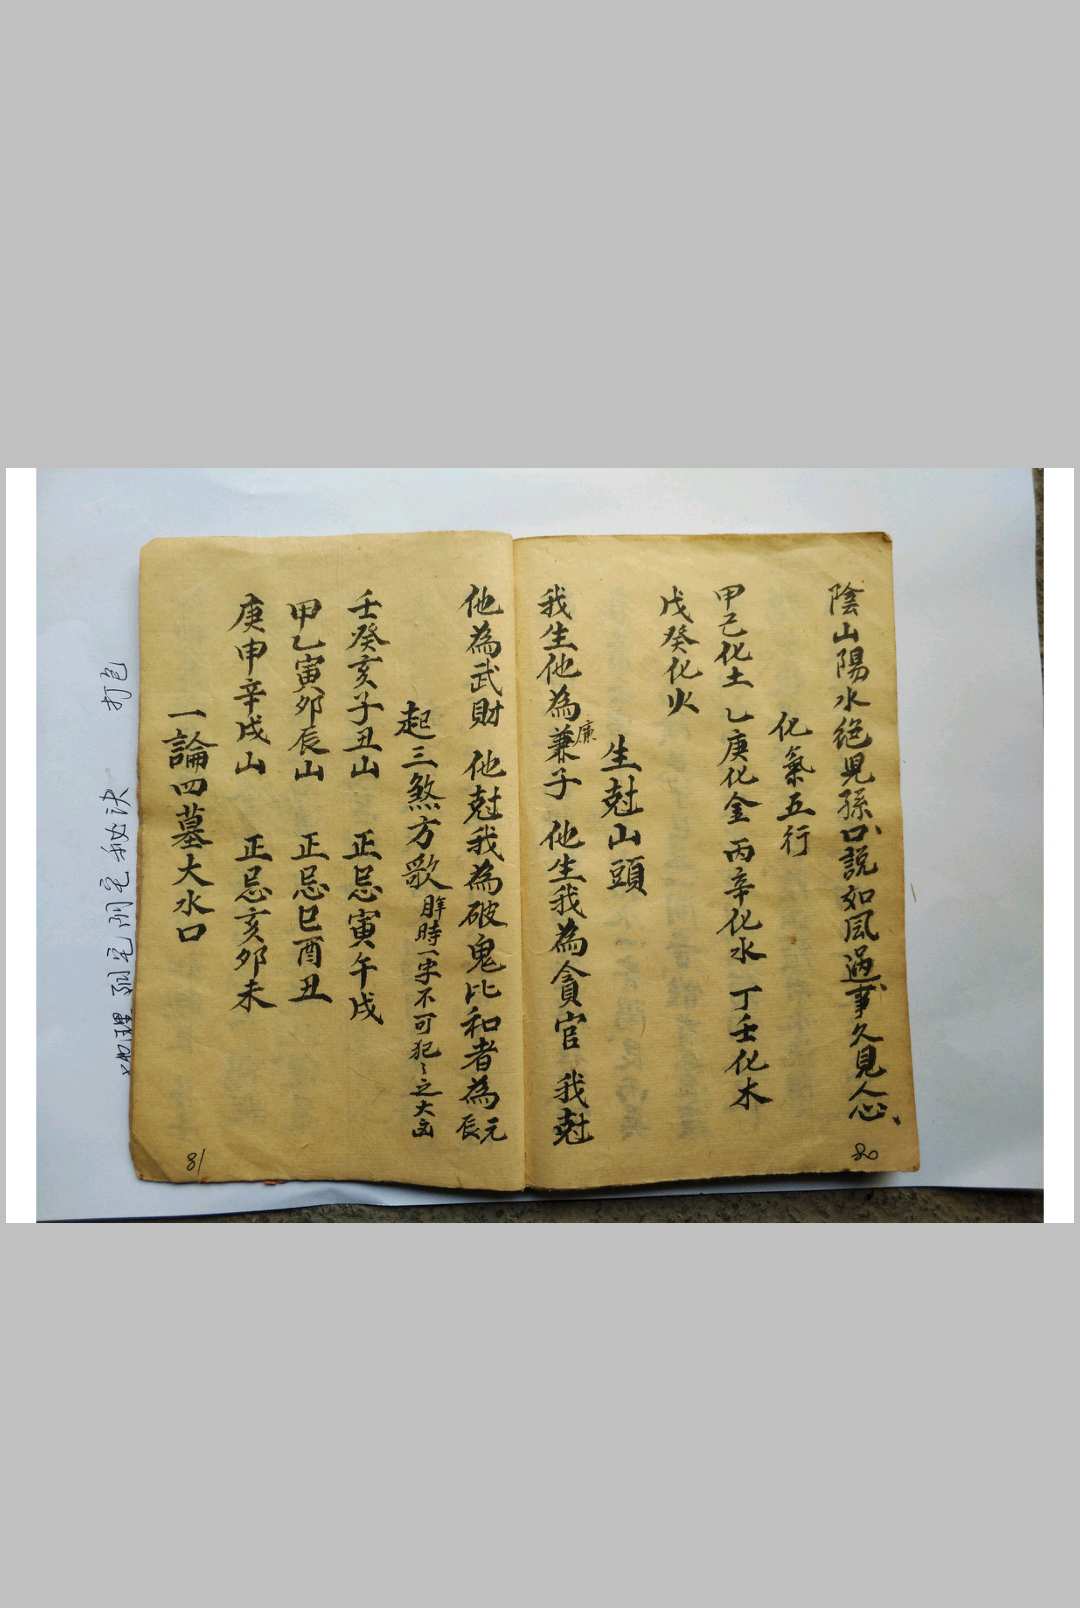 陰山陽水絶兒孫口說如風過事久見人心、
化氣五行
甲己化土 乙庚化金 丙辛化水 丁壬化木
戊癸化火
生尅山頭
我生他為兼子 他生我為貪官 我尅
廉
他為武財 他尅我為破鬼比和者為元辰
起三煞方歌
時一字不可犯〻之大凶
壬癸亥子丑山 正忌寅午戌
甲乙寅卯辰山 正忌巳酉丑
庚申辛戌山 正忌亥卯未
一論四墓大水口
80
81
地理阳宅阴宅秘诀 打包